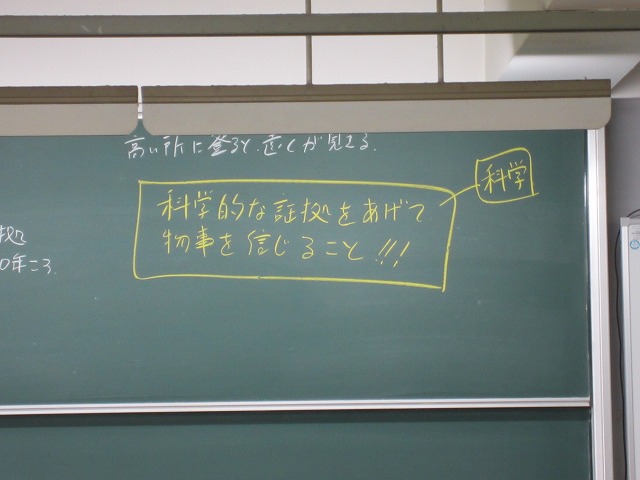 高い所に登ると、遠くが見える。
科学的な証拠をあげて
物事を信じること!!!
科学
拠
0年ころ